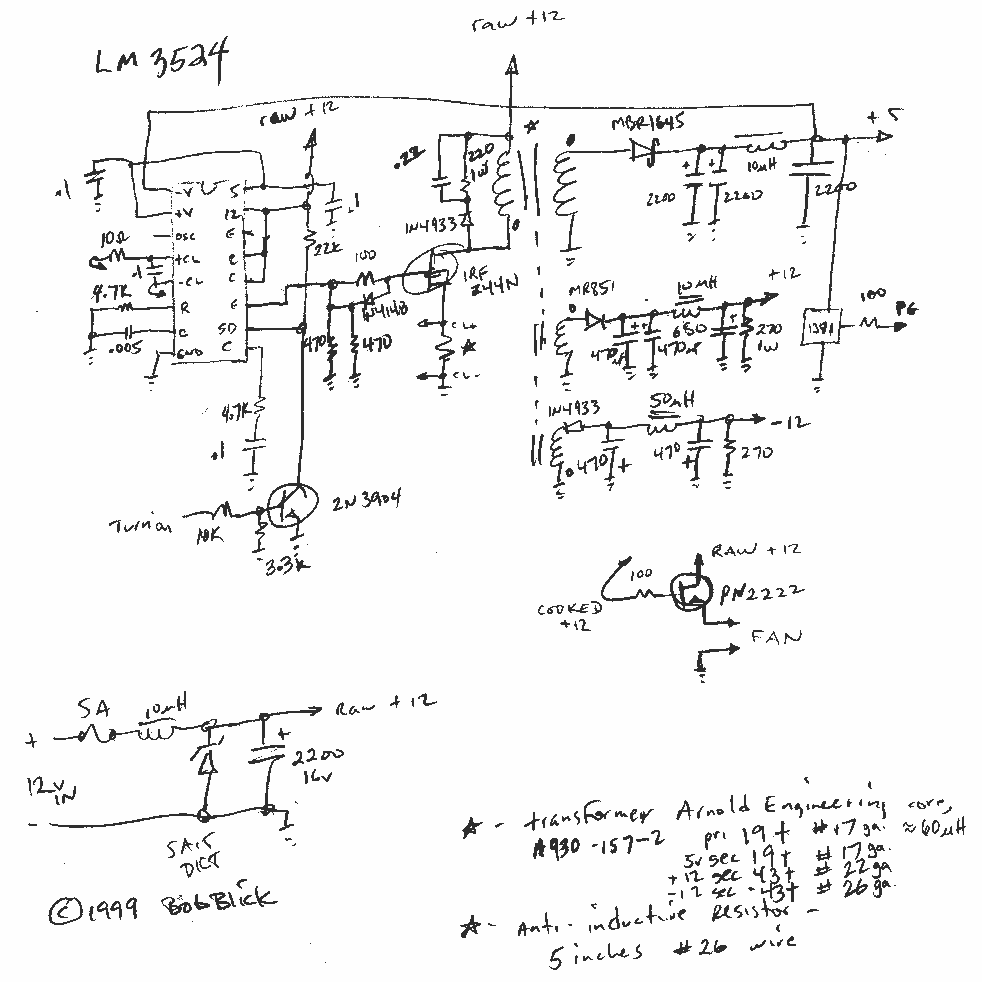 LM 3524
raw +12
raw +12
.1
-V
+V
OSC
+CL
-CL
R
C
GND
5
12
E
C
E
SD
C
.1
10Ω
.1
4.7K
.005
22K
100
1N4148
470
470
.22
220
1W
1N4933
IRF
Z44N
CL+
CL-
MBR1645
+5
2200
2200
10μH
2200
MR851
10μH
+12
470
μF
650
470μF
270
1W
1381
100
PG
1N4933
50μH
-12
470
+
470
+
270
4.7K
.1
Turnon
10K
3.3K
2N3904
RAW +12
100
PN2222
COOKED
+12
FAN
5A
10μH
Raw +12
+
12V
IN
-
+
2200
16V
SA15
DICT
© 1999 Bob Blick
☆ - transformer Arnold Engineering core,
A930-157-2 pri 19t #17 ga. ≈60μH
5v sec 19t #17ga.
+12 sec 43t #22ga
-12 sec 43t #26ga.
☆ - Anti-inductive Resistor -
5 inches #26 wire